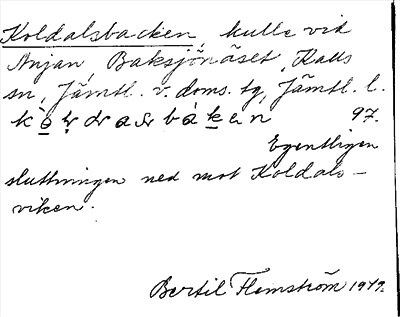 Koldalsbacken, kulle vid
Anjan, Baksjönäset, Kalls
sn, Jämtl. v. doms. tg, Jämtl. l.
97.
Egentligen
sluttningen ned mot Koldals-
viken.
Bertil Flemström 1949.